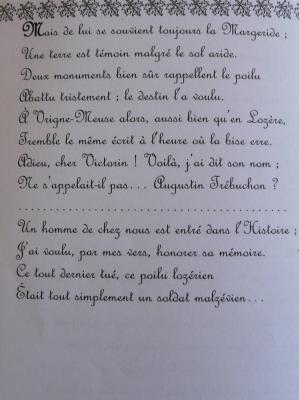 Mais de lui se souvient toujours la Margeride ;
Une terre est témoin malgré le sol aride.
Deux monuments bien sûr rappellent le poilu
Abattu tristement ; le destin l'a voulu.
À Vrigne-Meuse alors, aussi bien qu'en Lozère,
Tremble le même écrit à l'heure où la bise erre.
Adieu, cher Victorin ! Voilà, j'ai dit son nom ;
Ne s'appelait-il pas... Augustin Trébuchon ?
........................................
Un homme de chez nous est entré dans l'Histoire ;
J'ai voulu, par mes vers, honorer sa mémoire.
Ce tout dernier tué, ce poilu lozérien
Était tout simplement un soldat malzévien...